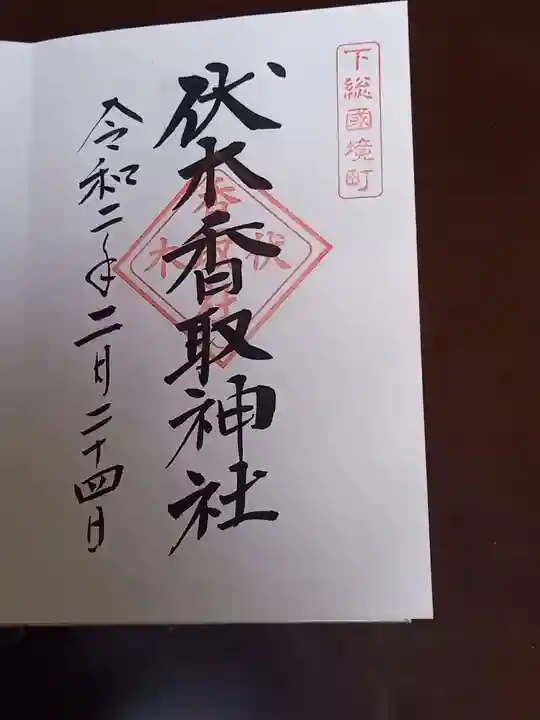 下総國境町
伏木香取神社
伏木
令和二年二月二十四日